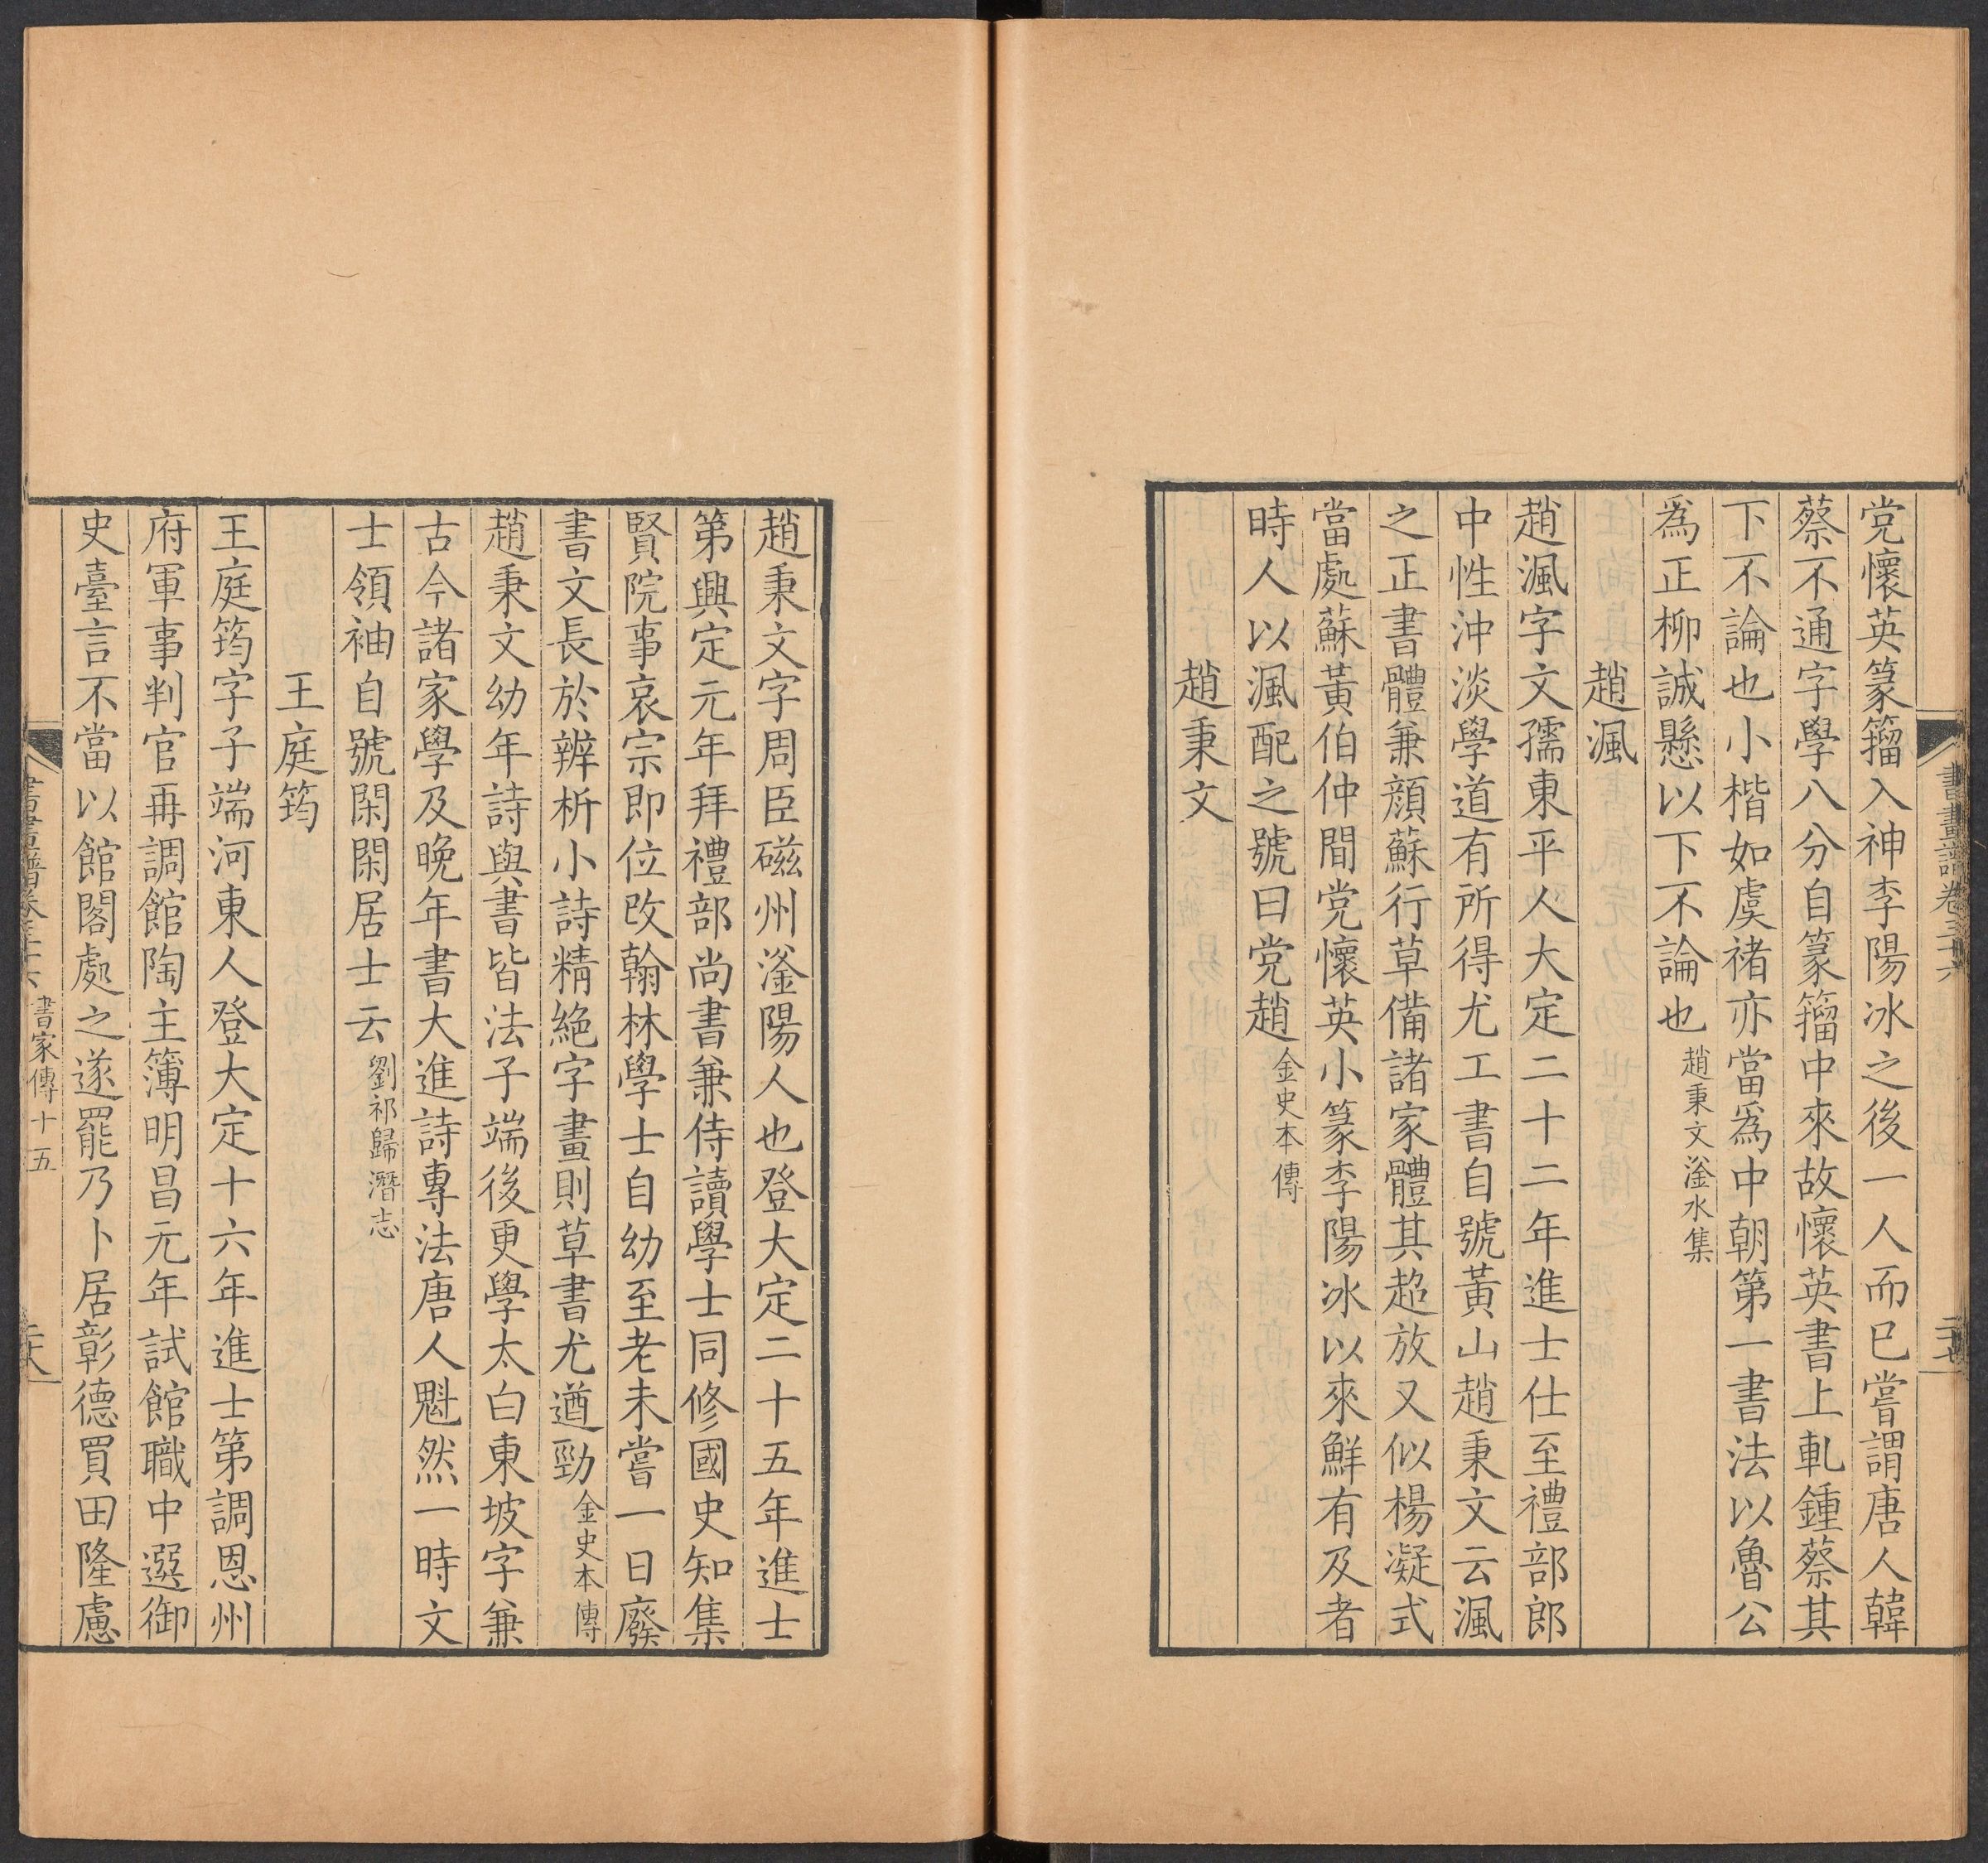 書畫譜卷三十六
二十七
党懷英篆籀入神李陽冰之後一人而已嘗謂唐人韓
蔡不通字學八分自篆籀中來故懷英書上軋鍾蔡其
下不論也小楷如虞褚亦當爲中朝第一書法以魯公
爲正柳誠懸以下不論也趙秉文滏水集
趙渢
趙渢字文孺東平人大定二十二年進士仕至禮部郎
中性沖淡學道有所得尤工書自號黃山趙秉文云渢
之正書體兼顏蘇行草備諸家體其超放又似楊凝式
當處蘇黃伯仲間党懷英小篆李陽冰以來鮮有及者
時人以渢配之號曰党趙金史本傳
趙秉文
趙秉文字周臣磁州滏陽人也登大定二十五年進士
第興定元年拜禮部尚書兼侍讀學士同修國史知集
賢院事哀宗即位改翰林學士自幼至老未嘗一日廢
書文長於辨析小詩精絕字畫則草書尤遒勁金史本傳
趙秉文幼年詩與書皆法子端後更學太白東坡字兼
古今諸家學及晚年書大進詩專法唐人魁然一時文
士領袖自號閑閑居士云劉祁歸潛志
王庭筠
王庭筠字子端河東人登大定十六年進士第調恩州
府軍事判官再調館陶主簿明昌元年試館職中選御
史臺言不當以館閣處之遂罷乃卜居彰德買田隆慮
書畫譜卷三十六 書家傳十五
二十八